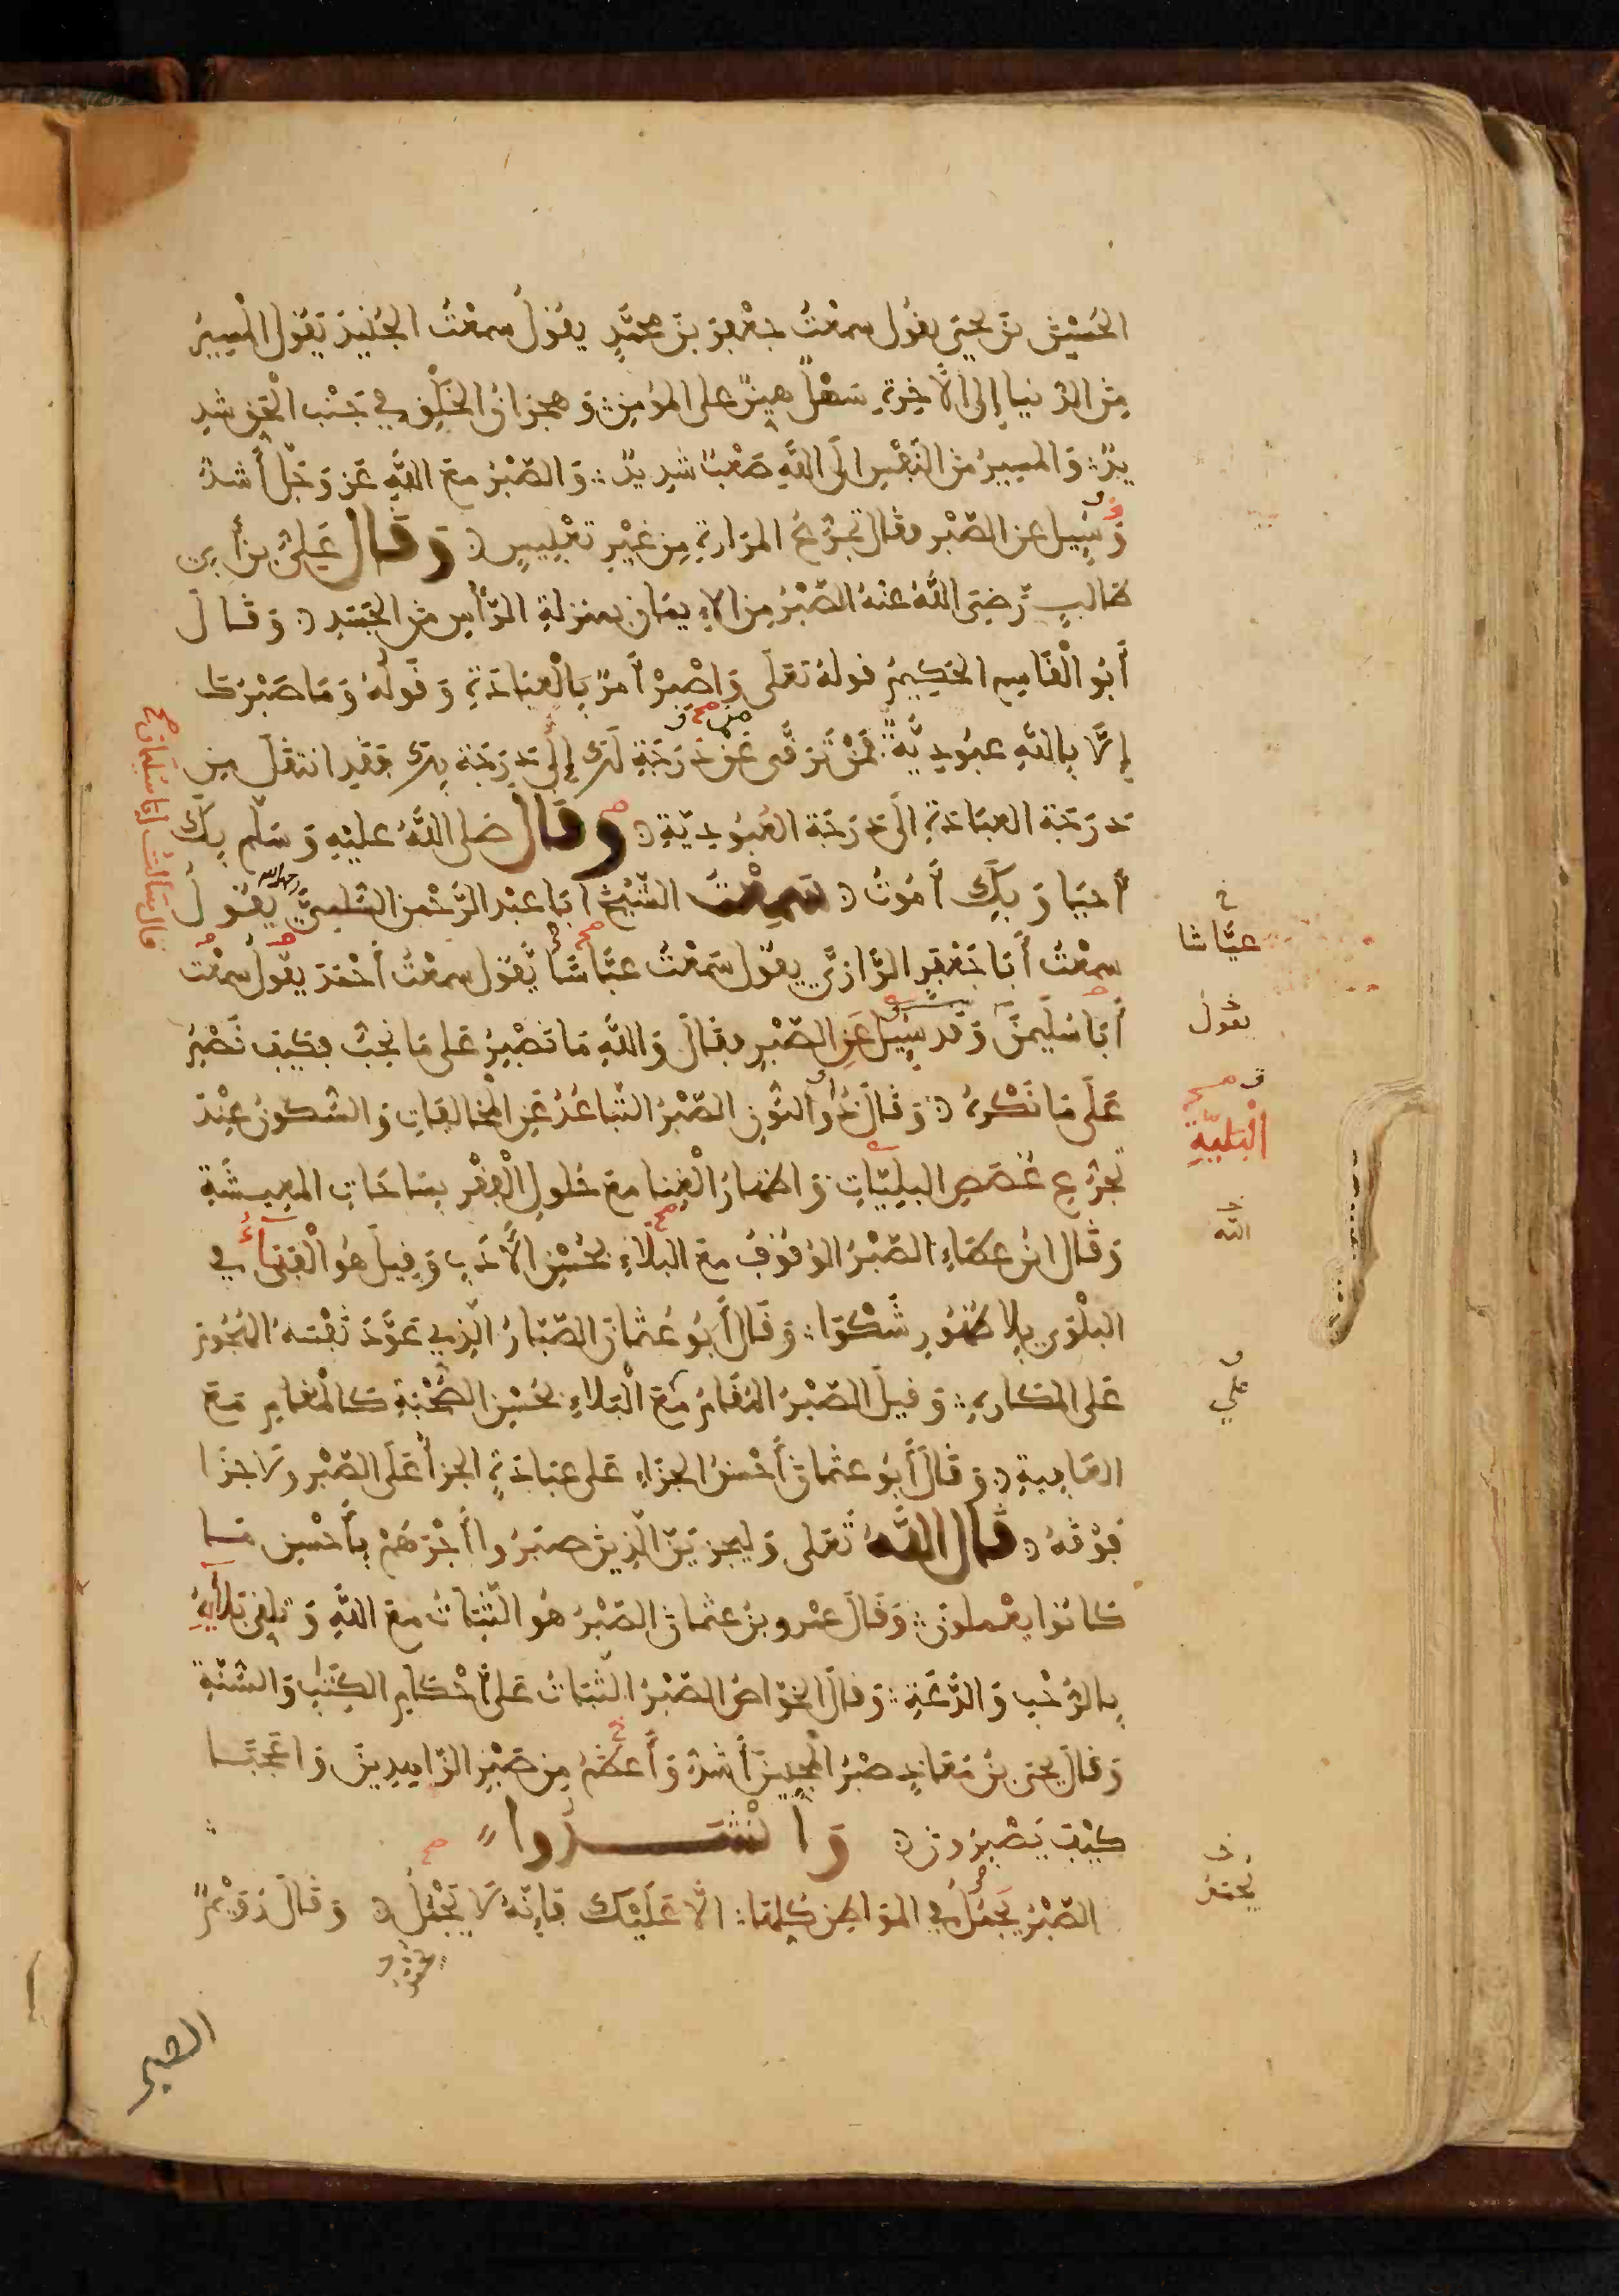 الحُسَيْنَ بنَ يحيَى يقُول سمعْتُ جعْفرَ بنَ محمَّدٍ يقُولُ سمعْتُ الجُنَيْدَ يَقُول المَسِيرُ
مِنَ الدُّنيا إلى الأَخِرةِ سَهْلٌ هيِّنٌ على المؤْمِنِ وَهجرانُ الخَلْقِ في جَنْبِ الحَقِّ شدِ
يدٌ وَالمسِيرُ مِنَ النَّفْسِ إلى اللَّهِ صَعْبٌ شدِيدٌ وَالصّبْرُ معَ اللَّهِ عَزّ وَجَلَّ أَشدُّ
وَسُيِلَ عن الصّبْرِ فقالَ تَجَرُّعُ المرَارةِ مِن غيْرِ تعْبِيسٍ وَقَال عَلِيُّ بنُ أَبِي
طالبٍ رَّضِيَ اللَّهُ عنهُ الصّبْرُ مِنَ الاِيمَانِ بمنزلةِ الرَّأْسِ مِنَ الجَسَدِ وَقَالَ
أَبُو الْقَاسِمِ الحَكِيمُ قولهُ تعَلَى وَاصْبِرْ أَمرٌ بِالْعِبَادَةِ وَقَولُهُ وَمَا صَبْرُكَ
إِلَّا بِاللَّهِ عبُودِيَّةٌ فَمَنْ تَرقَّى مِنْ دَرَجَةِ لَكَ إِلَى دَرَجَةِ بِكَ فَقَدِ انتقَلَ مِن
دَرَجَةِ العِبَادَةِ إلى دَرَجَةِ العُبُودِيَّةِ وقَال صَلى اللَّهُ عليْهِ وَسَلَّم بِكَ
أَحيَا وَبِكَ أَمُوتُ سَمِعْتُ الشّيْخَ ابَا عبْدِ الرَّحْمنِ السُّلَمِيَّ رحمه الله يقُولُ
سمعْتُ أَبَا جَعْفَرٍ الرَّازيَّ يقول سَمعْتُ عبَّاسًا يَّقول سمعْتُ أَحْمَدَ يقُولُ سمْعْتُ
أَبَا سُلَيمنَ وَقد سُيِلَ عَنِ الصّبْرِ فقالَ وَاللَّهِ مَا نَصْبِرُ عَلى مَا نحِبُّ فكيْفَ نَصْبِرُ
عَلَى مَا نَكْرهُ وَقَالَ ذُوا النُّونِ الصّبْرُ التَّبَاعُدُ عَنِ الْمخَالفَاتِ وَالسُّكونُ عِنْدَ
تَجَرُّعِ غُصَصِ البلِيَّاتِ وَاظهَارُ الْغِنا معَ حُلولِ الْفقْرِ بسَاحَاتِ المَعِيشَةِ
وَقَال ابْنُ عطَاءٍ الصّبْرُ الوُقوفُ معَ البَلَاءِ بحُسْنِ الأَدَبِ وَقِيلَ هُو الْفَنَآءُ في
البلْوَى بِلا ظُهُورِ شَكْوَا وَقَالَ أَبُو عُثمانَ الصّبَّارُ الّذي عَوَّدَ نَفْسَهُ الهُجُومَ
عَلى المكَارِهِ وَقيلَ الصّبْرُ المُقَامُ مَعَ الْبَلاءِ بحُسْنِ الصُّحْبَةِ كَالْمُقامِ مَعَ
العَافِيةِ وَقَالَ أَبُو عثمانَ أَحْسَنُ الجزَاءِ عَلى عبَادَةٍ الجزَاءُ عَلَى الصّبْرِ وَلَا جَزَا
فَوْقَهُ قَالَ اللَّهُ تَعَلى وَليجزِيَنَّ الّذِينَ صبَرُوا أَجْرَهُمْ بِأَحْسَنِ مَا
كَانُوا يعْملونَ وَقَالَ عمْرو بنُ عثمانَ الصّبْرُ هُو الثّبَاتُ معَ اللَّهِ وَتلقِّي بَلَآيهِ
بِالرُّحْبِ وَالدَّعَةِ وَقَالَ الخوّاصُ الصّبْرُ الثّبَاتُ عَلَى أَحْكَامِ الكِتَبِ وَالسُّنّةِ
وَقَالَ يحيَى بنُ مُعَاذٍ صبْرُ المُحِبِّينَ أَشدُّ وَأَعظمُ مِن صَبْرِ الزَّاهِدِينَ وَاعَجَبَا
كيْفَ يَصْبِرُونَ وَأَنْشَدُوا
الصّبْرُ يَجمُلُ في المَوَاطِنِ كُلِّهَا الَّا عَلَيْكَ فَإِنّهُ لَا يَجْمُلُ وَقَالَ رُوَيْمٌ
قال سالت ابا سليمان صح
عيَّاشا
يقول
الْبَلِيّةِ
الله
علي
يُحمَدُ
الصبر